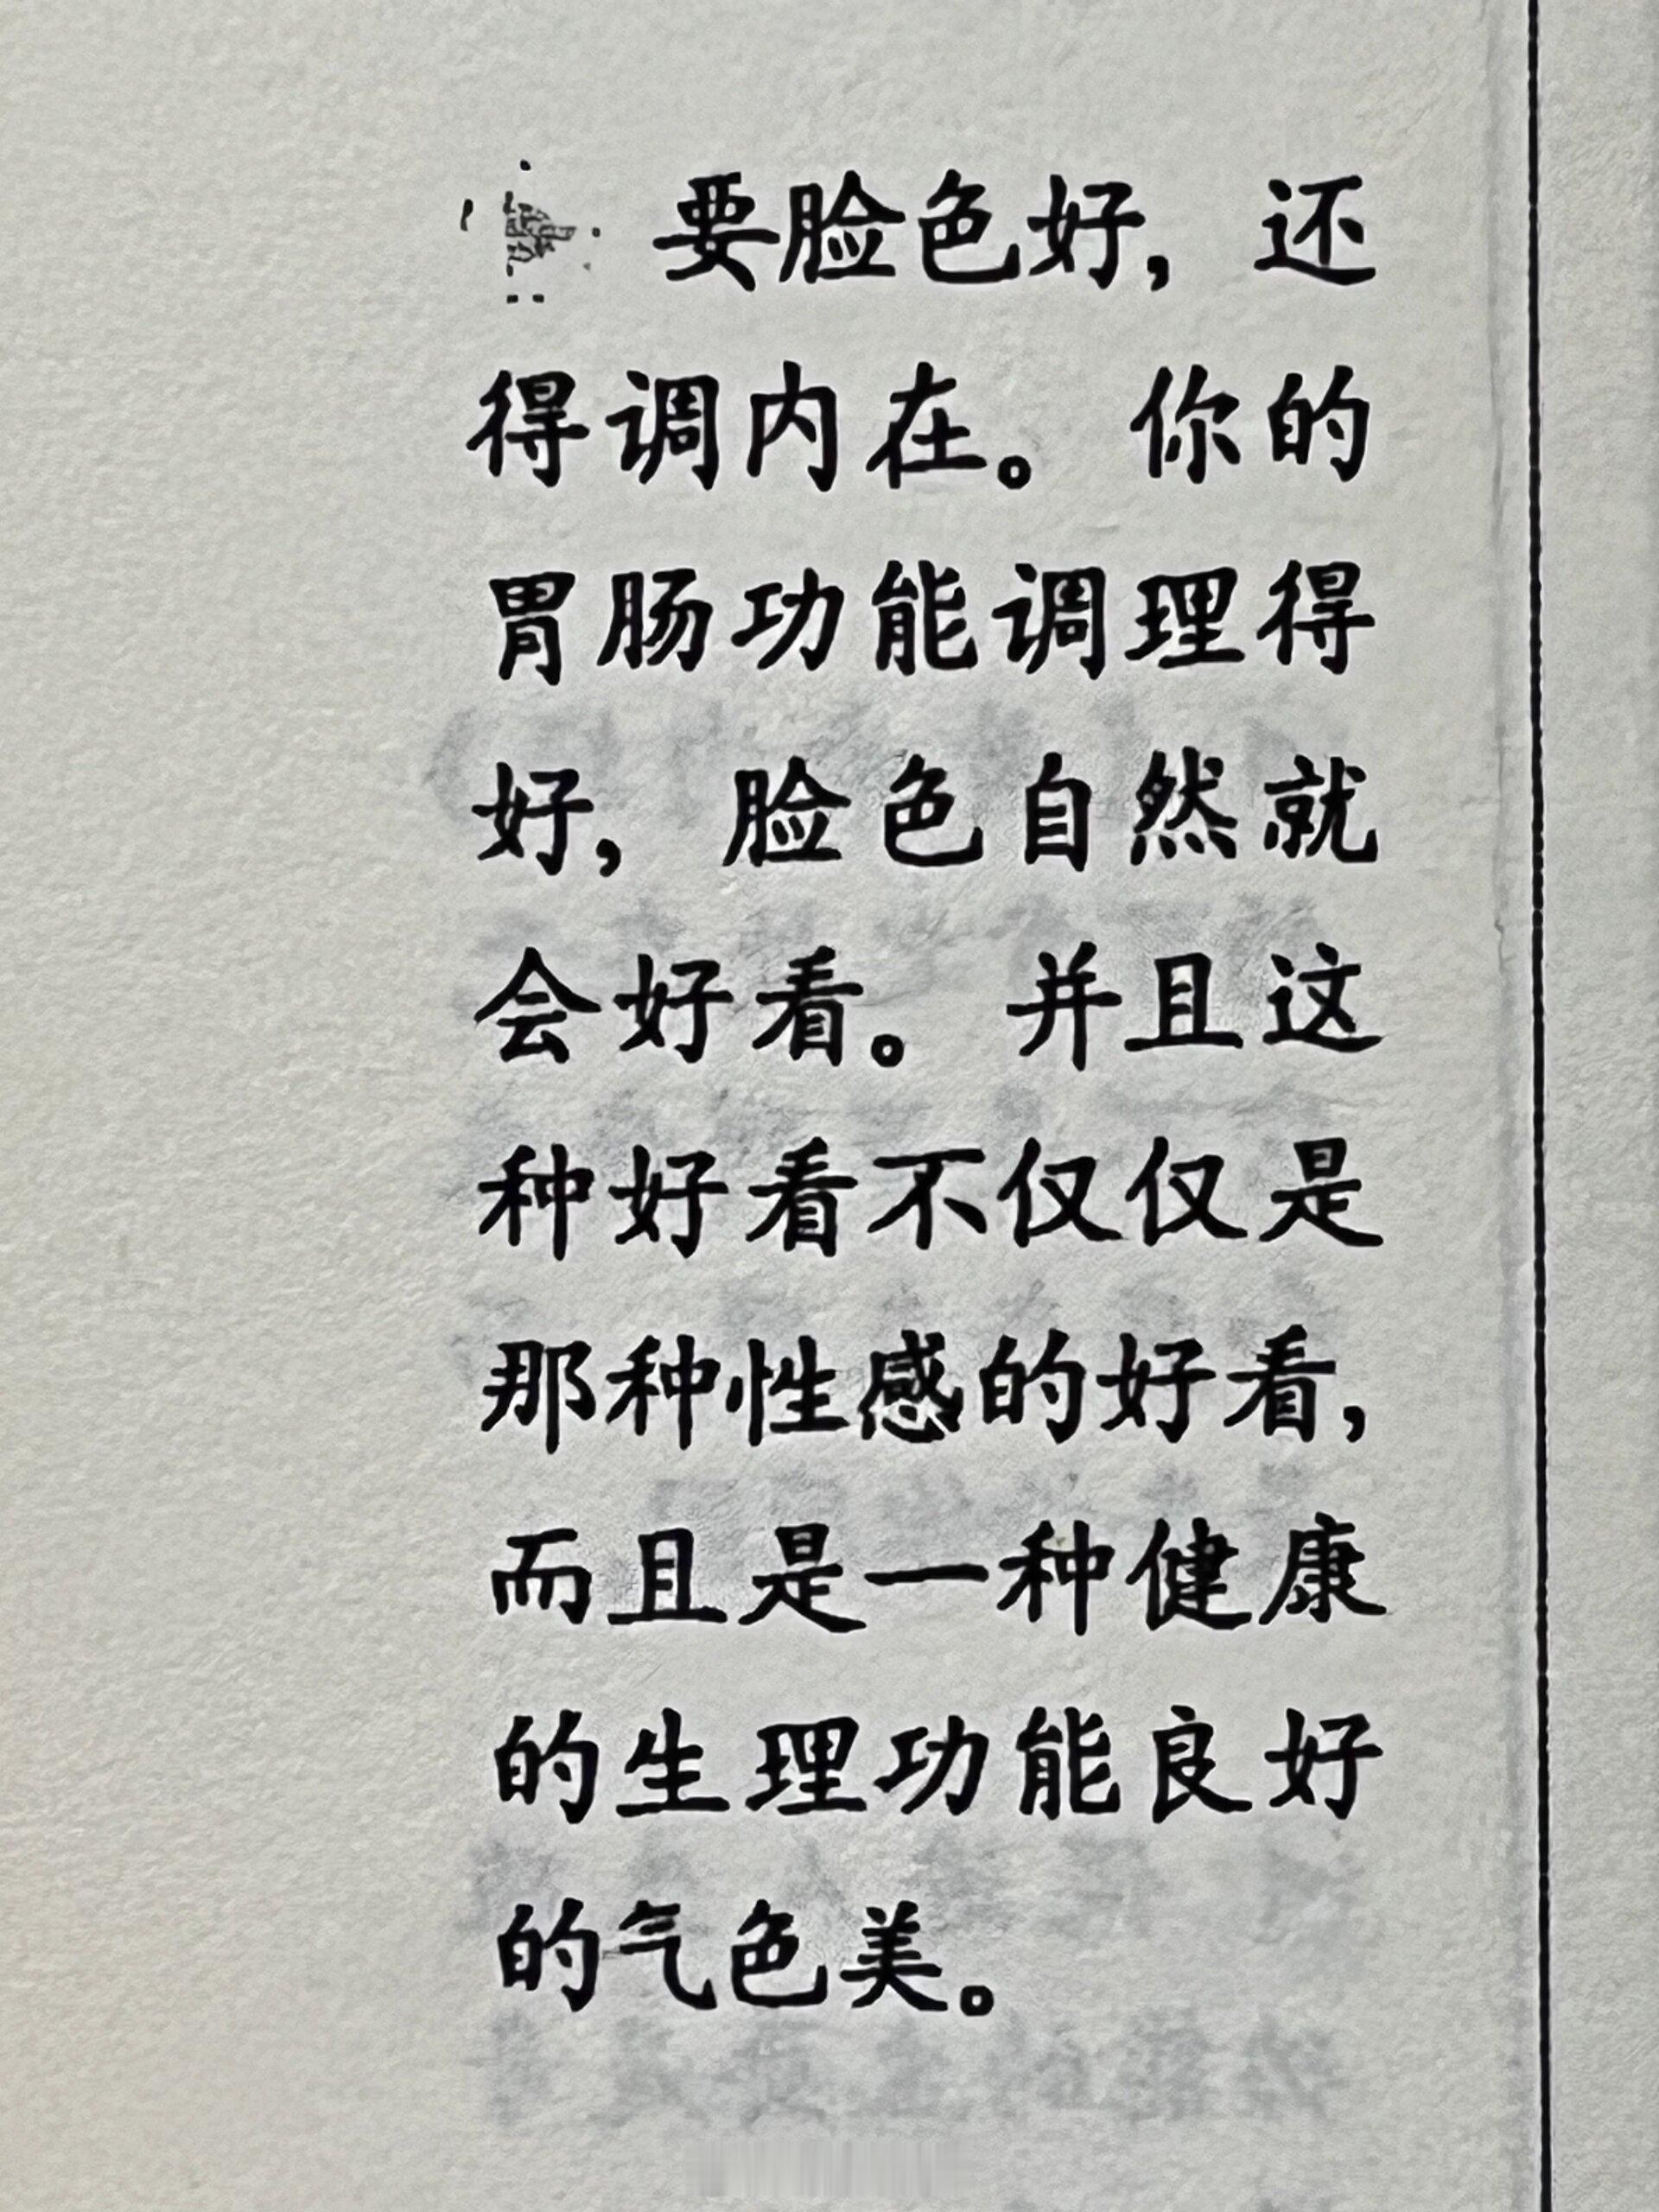 要脸色好，还
得调内在。你的
胃肠功能调理得
好，脸色自然就
会好看。并且这
种好看不仅仅是
那种性感的好看，
而且是一种健康
的生理功能良好
的气色美。